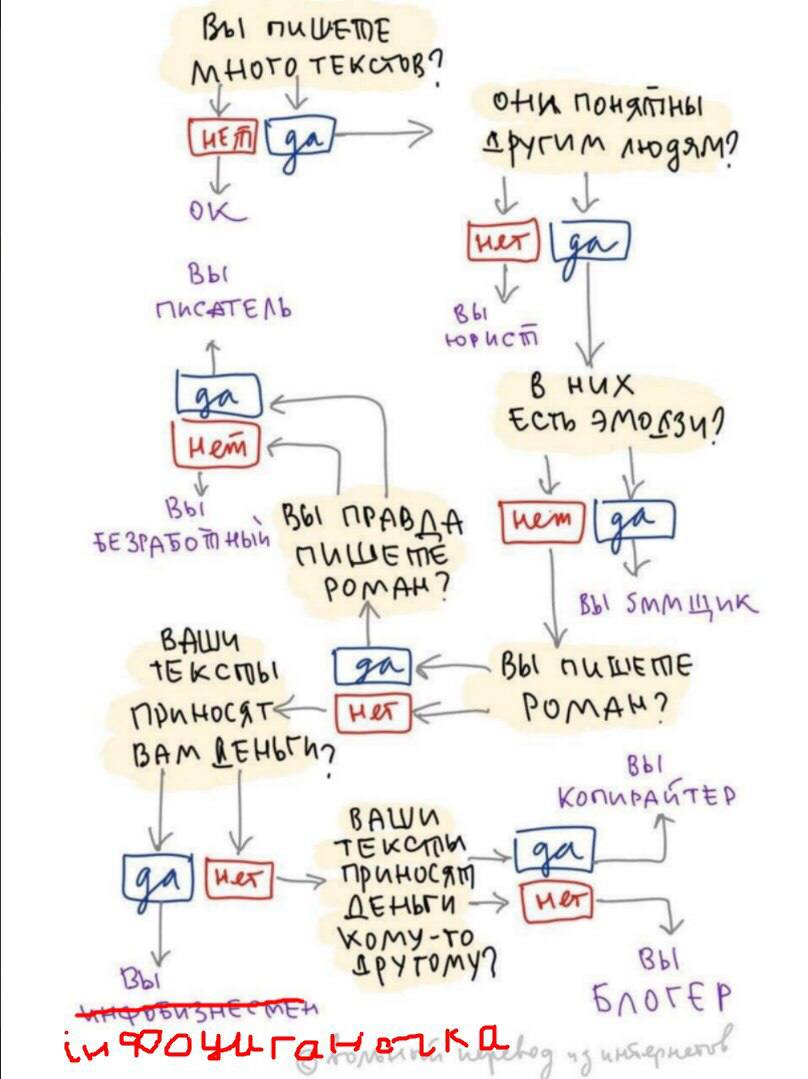 ВЫ ПИШЕТЕ
МНОГО ТЕКСТОВ?
нет
да
ОК
ОНИ ПОНЯТНЫ
ДРУГИМ ЛЮДЯМ?
нет
да
ВЫ
ЮРИСТ
В НИХ
ЕСТЬ ЭМОДЗИ?
нет
да
ВЫ SMMЩИК
ВЫ ПИШЕТЕ
РОМАН?
да
нет
ВЫ ПРАВДА
ПИШЕТЕ
РОМАН?
да
нет
ВЫ
ПИСАТЕЛЬ
ВЫ
БЕЗРАБОТНЫЙ
ВАШИ
ТЕКСТЫ
ПРИНОСЯТ
ВАМ ДЕНЬГИ?
да
нет
ВЫ
ИНФОБИЗНЕСМЕН
інФОциганочка
ВАШИ
ТЕКСТЫ
ПРИНОСЯТ
ДЕНЬГИ
КОМУ-ТО
ДРУГОМУ?
да
нет
ВЫ
КОПИРАЙТЕР
ВЫ
БЛОГЕР
© вольный перевод из интернетов